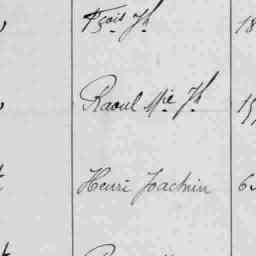 Fçois Jh 18
Raoul Mie Jh
Henri Joachim 6